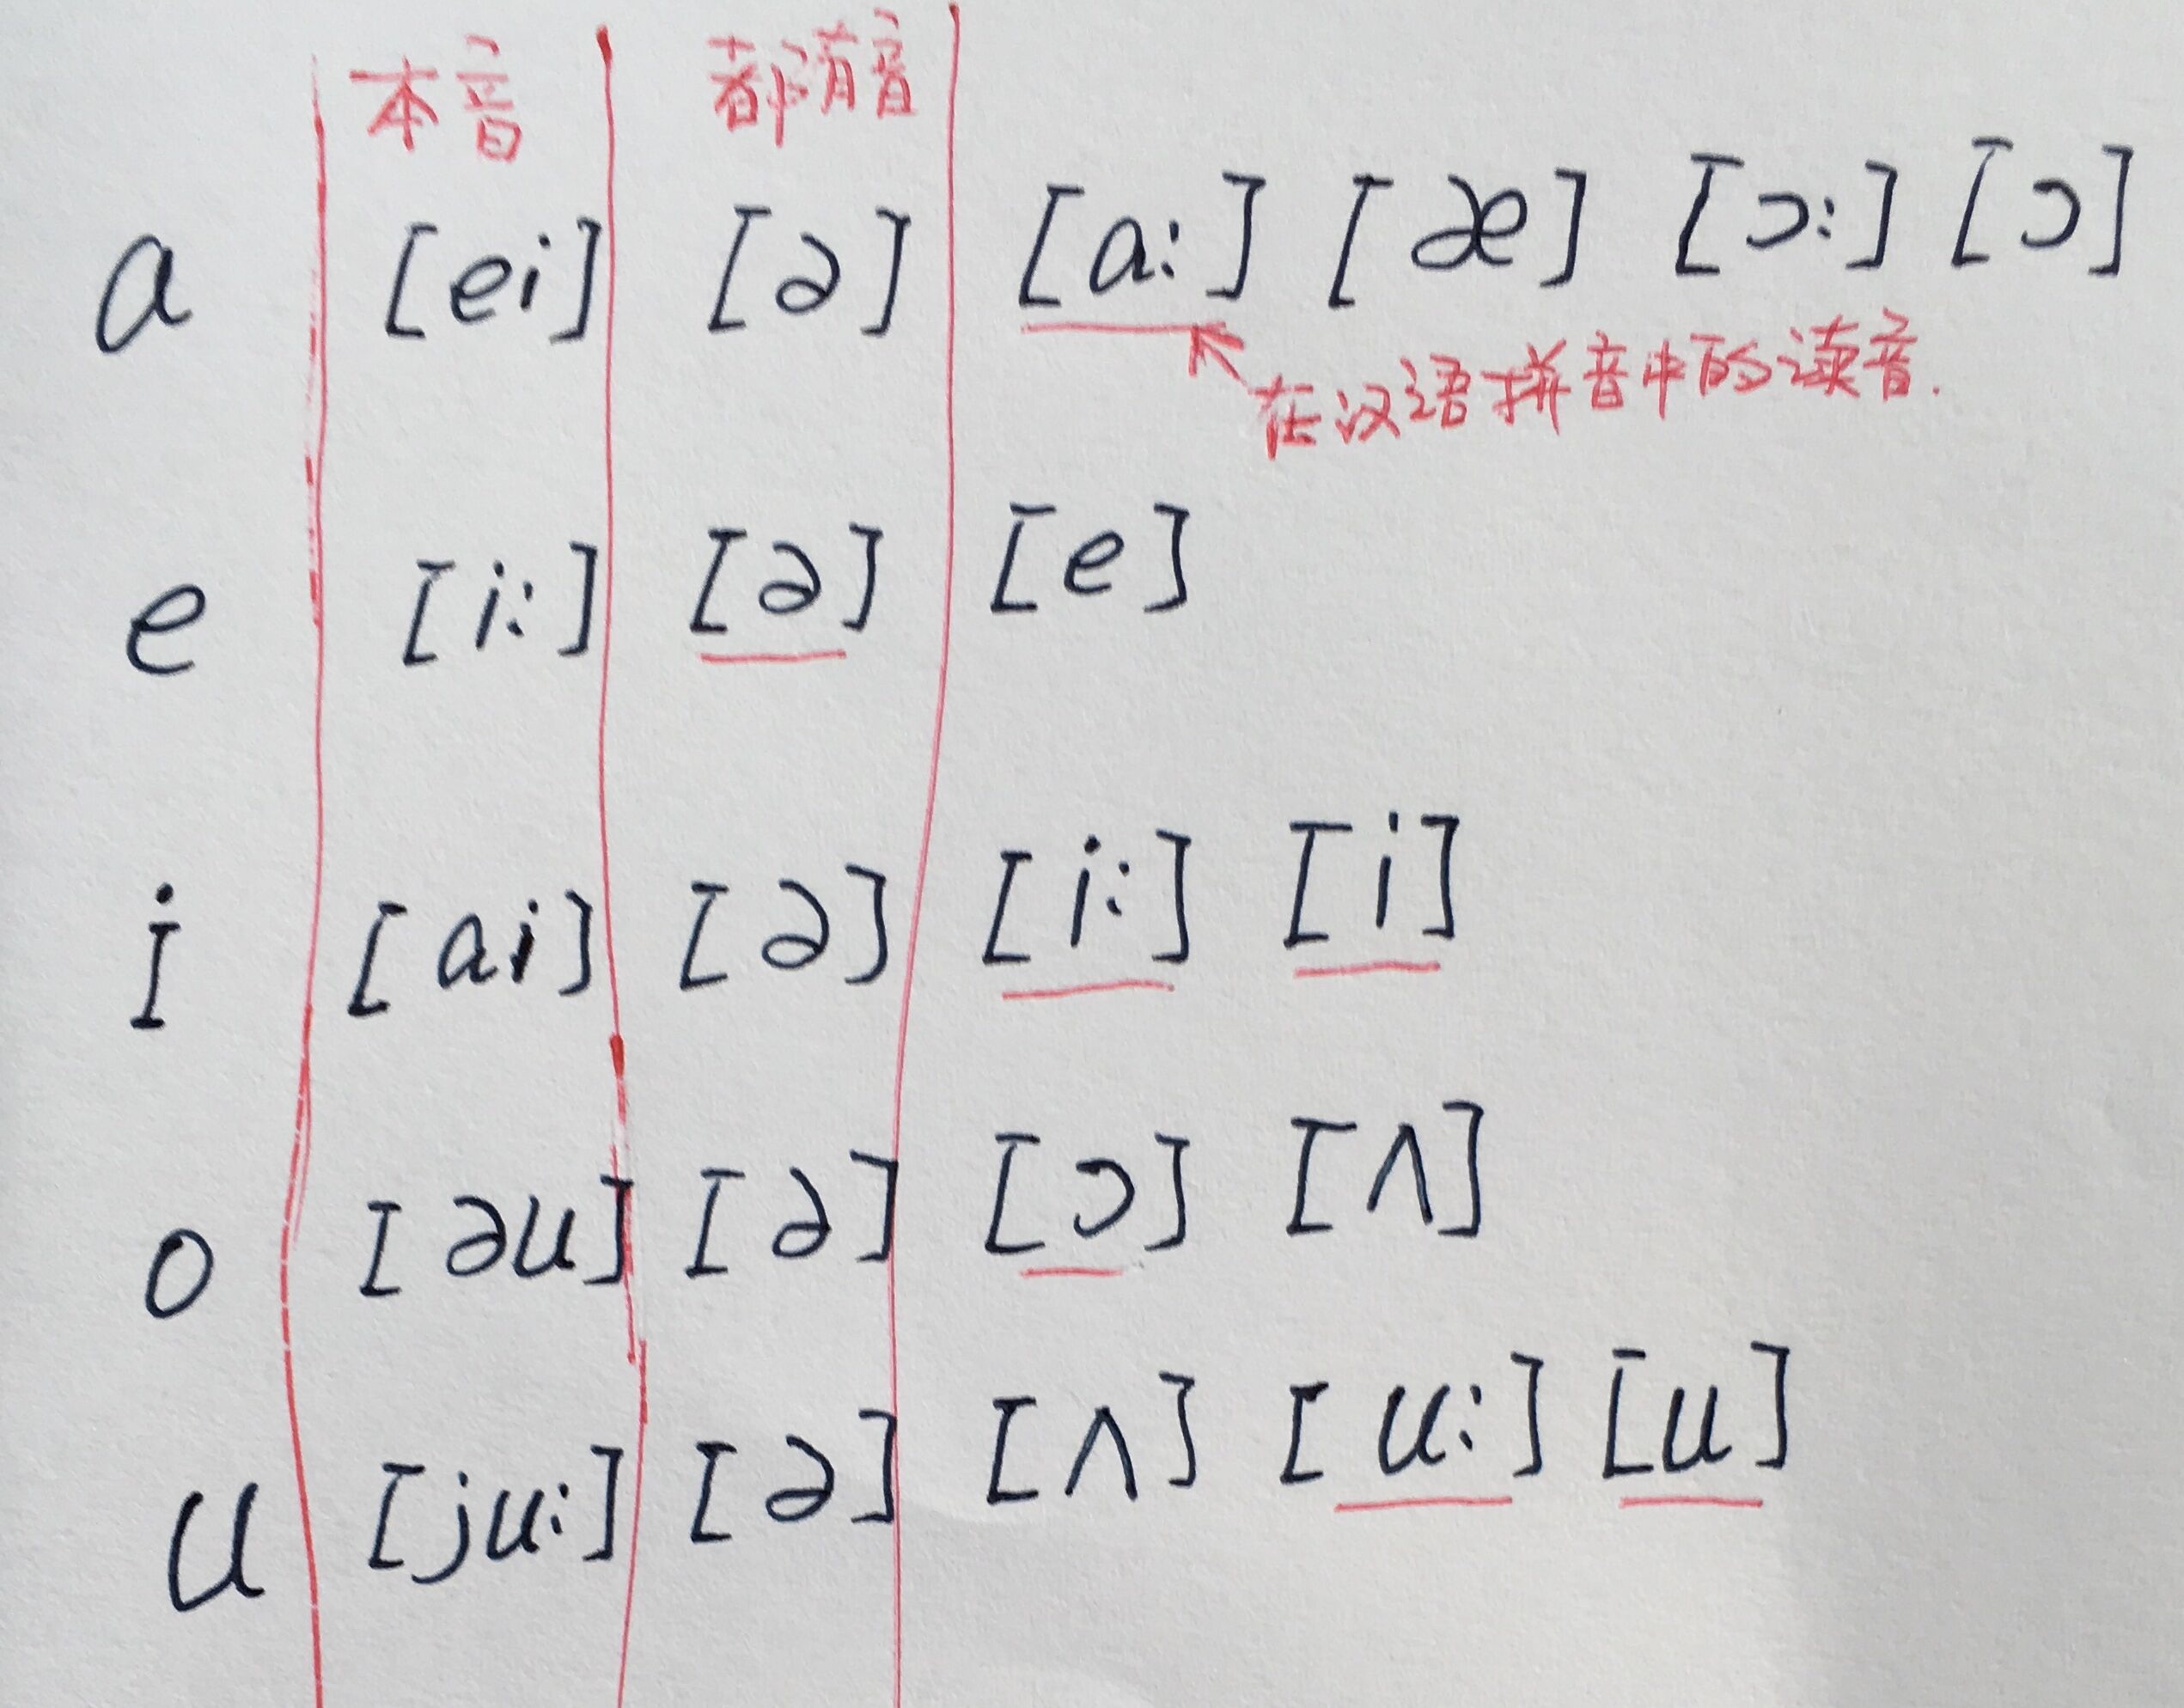 本音 都有音
a [ei] [ə] [a:] [æ] [ɔ:] [ɔ]
在汉语拼音中的读音.
e [i:] [ə] [e]
i [ai] [ə] [i:] [i]
o [əu] [ə] [ɔ] [ʌ]
u [ju:] [ə] [ʌ] [u:] [u]